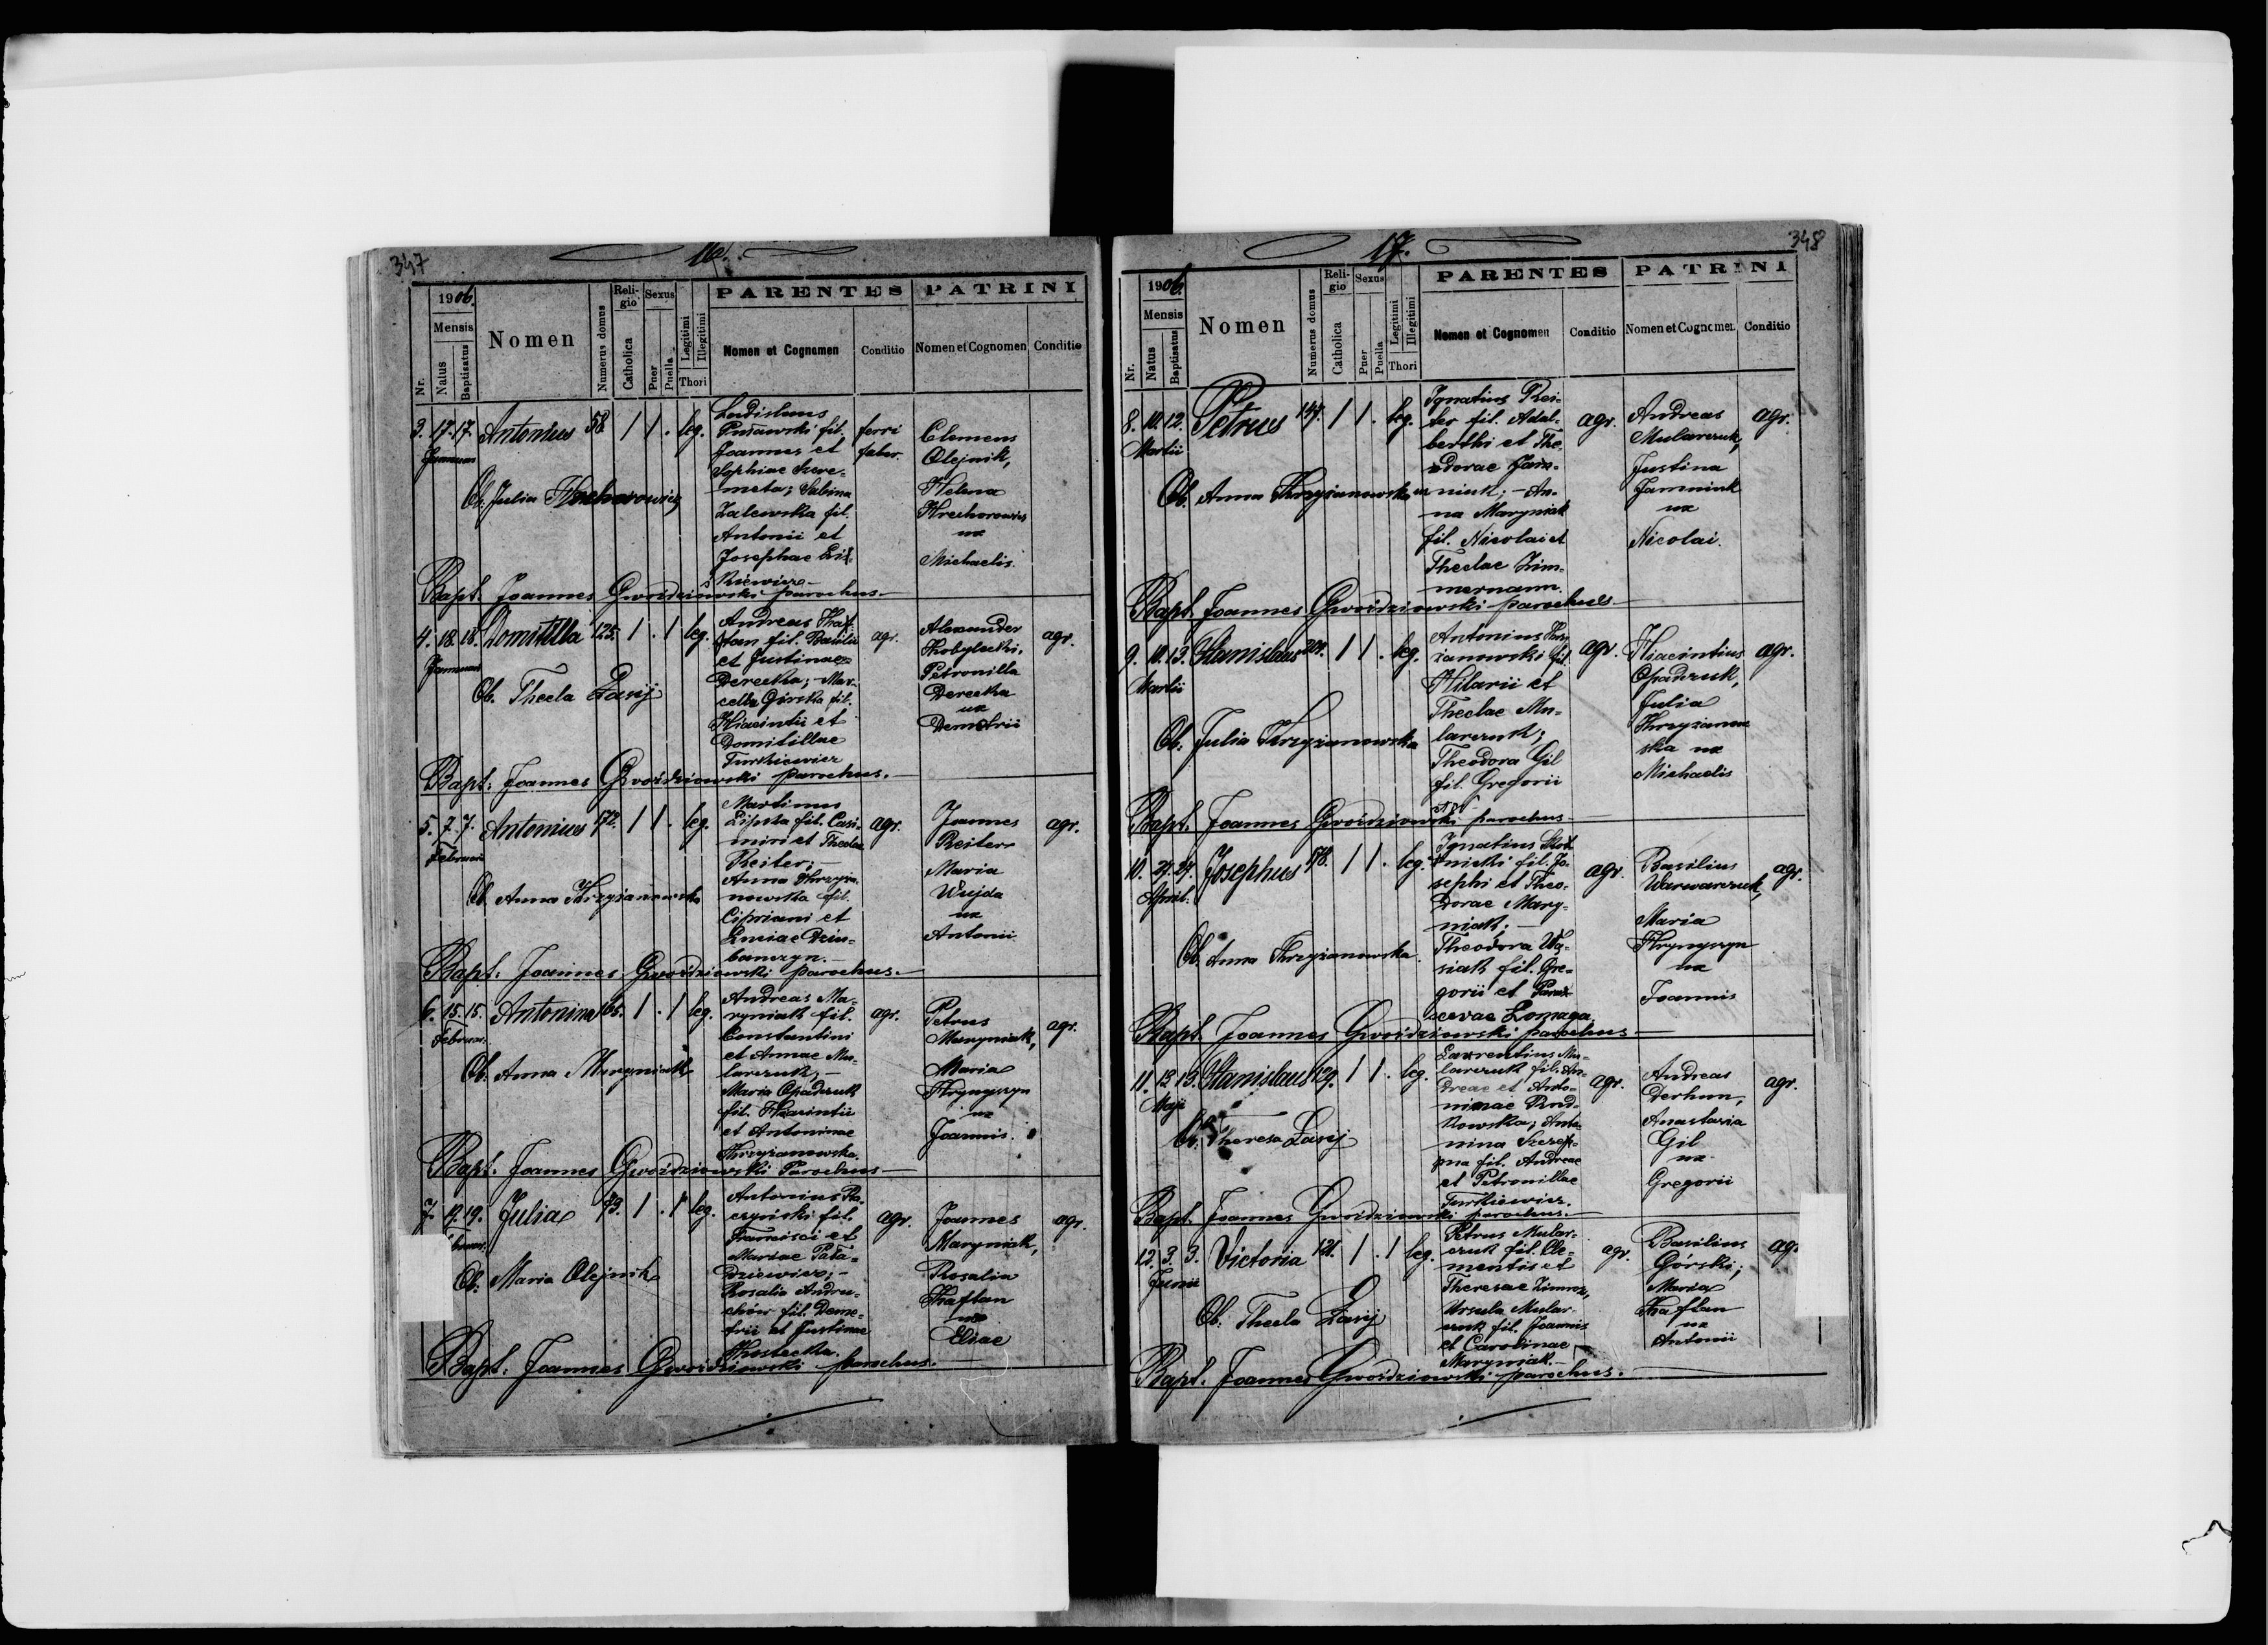 347
16.
1906
Mensis
Nr.
Natus
Baptisatus
Nomen
Numerus domus
Religio
Catholica
Sexus
Puer
Puella
Legitimi
Illegitimi
Thori
PARENTES
Nomen et Cognomen
Conditio
PATRINI
Nomen et Cognomen
Conditio
3. 17. 17. Antonius 58. 1 1 . leg.
Januar
Ob. Julia Krechorowicz
Ladislaus
fil.
Joannes et
Sophiae Szere-
meta; Sabina
Zalewska fil.
Antonii et
Josephae
ferri
faber.
Clemens
Olejnik,
Helena
Krechorowicz
ux
Michaelis.
Bapt. Joannes Gwoździowski parochus.
4. 18. 18. Domitilla 125. 1 . 1 leg.
Januar
Ob. Thecla Zasij
Andreas Kaf-
tan fil. Basilii
et Justinae
Derecka; Mar-
cella Górska fil.
Hiacintii et
Domitillae
Turkiewicz
agr.
Alexander
Kobylecki,
Petronilla
Derecka
ux
Demetrii
agr.
Bapt. Joannes Gwoździowski parochus.
5. 7. 7. Antonius 172. 1 1 . leg.
Februar
Ob. Anna Krzyżanowska
Martinus
Lipska fil. Casi-
miri et Theclae
Reiter; -
Anna Krzyża-
nowska fil.
Cipriani et
Luciae Dziu-
banczyn. -
agr.
Joannes
Reiter
Maria
Wujda
ux
Antonii
agr.
Bapt. Joannes Gwoździowski parochus.
6. 15. 15. Antonina 165. 1 . 1 leg.
Februar.
Ob. Anna Maryniak
Andreas Ma-
ryniak fil.
Constantini
et Annae Mu-
larczuk; -
Maria Opadczuk
fil. Hiacintii
et Antoninae
Krzyżanowska.
agr.
Petrus
Maryniak,
Maria
Hrynyszyn
ux
Joannis.
agr.
Bapt. Joannes Gwoździowski Parochus
7. 19. 19. Julia 73. 1 . 1 leg.
Ob. Maria Olejnik
Antonius Ra-
czyński fil.
Francisci et
Mariae Pała-
dziewicz; -
Rosalia Andru-
chów fil. Deme-
trii et Justinae
Kostecka.
agr.
Joannes
Maryniak,
Rosalia
Kaftan
ux
Eliae
agr.
Bapt. Joannes Gwoździowski parochus.
17.
348
1906.
Mensis
Nr.
Natus
Baptisatus
Nomen
Numerus domus
Religio
Catholica
Sexus
Puer
Puella
Legitimi
Illegitimi
Thori
PARENTES
Nomen et Cognomen
Conditio
PATRINI
Nomen et Cognomen
Conditio
8. 10. 12. Petrus 1 1 . leg.
Martii
Ob. Anna Krzyżanowska
Ignatius Rei-
ter fil. Adal-
berthi et The-
odorae Jam-
niuk; - An-
na Maryniak
fil. Nicolai et
Theclae Zim-
mermann.
agr.
Andreas
Mularczuk,
Justina
Jamniuk
ux
Nicolai.
agr.
Bapt. Joannes Gwoździowski parochus
9. 10. 13. Stanislaus 1 1 . leg.
Martii
Ob. Julia Krzyżanowska
Antonius Krzy-
żanowski fil.
Hilarii et
Theclae Mu-
larczuk;
Theodora Gil
fil. Gregorii
agr.
Hiacintius
Opadczuk,
Julia
Krzyżanow
ska ux
Michaelis
agr.
Bapt. Joannes Gwoździowski parochus
10. 27. 27. Josephus 78. 1 1 . leg.
April.
Ob. Anna Krzyżanowska.
Ignatius
fil. Jo-
sephi et Theo-
dorae Mary-
niak; -
Theodora Wą-
siak fil. Gre-
gorii et Paras-
cevae Łomaga.
agr.
Basilius
Warwarczuk,
Maria
Hrynyszyn
ux
Joannis
agr.
Bapt. Joannes Gwoździowski parochus
11. 12. 13. Stanislaus 129. 1 1 . leg.
Maji
Ob. Theresa Zasij
Laurentius Mu-
larczuk fil. An-
dreae et Anto-
ninae Rud-
kowska; Anto-
nina
fil. Andreae
et Petronillae
Turkiewicz.
agr.
Andreas
Derhun,
Anastasia
Gil
ux
Gregorii
agr.
Bapt. Joannes Gwoździowski parochus.
12. 3. 3. Victoria 121. 1 . 1 leg.
Junii
Ob. Thecla Zasij
Petrus Mular-
czuk fil. Cle-
mentis et
Theresae
Ursula Mular-
czuk fil. Joannis
et Carolinae
Maryniak. -
agr.
Basilius
Górski;
Maria
Kaftan
ux
Antonii
agr
Bapt. Joannes Gwoździowski parochus.